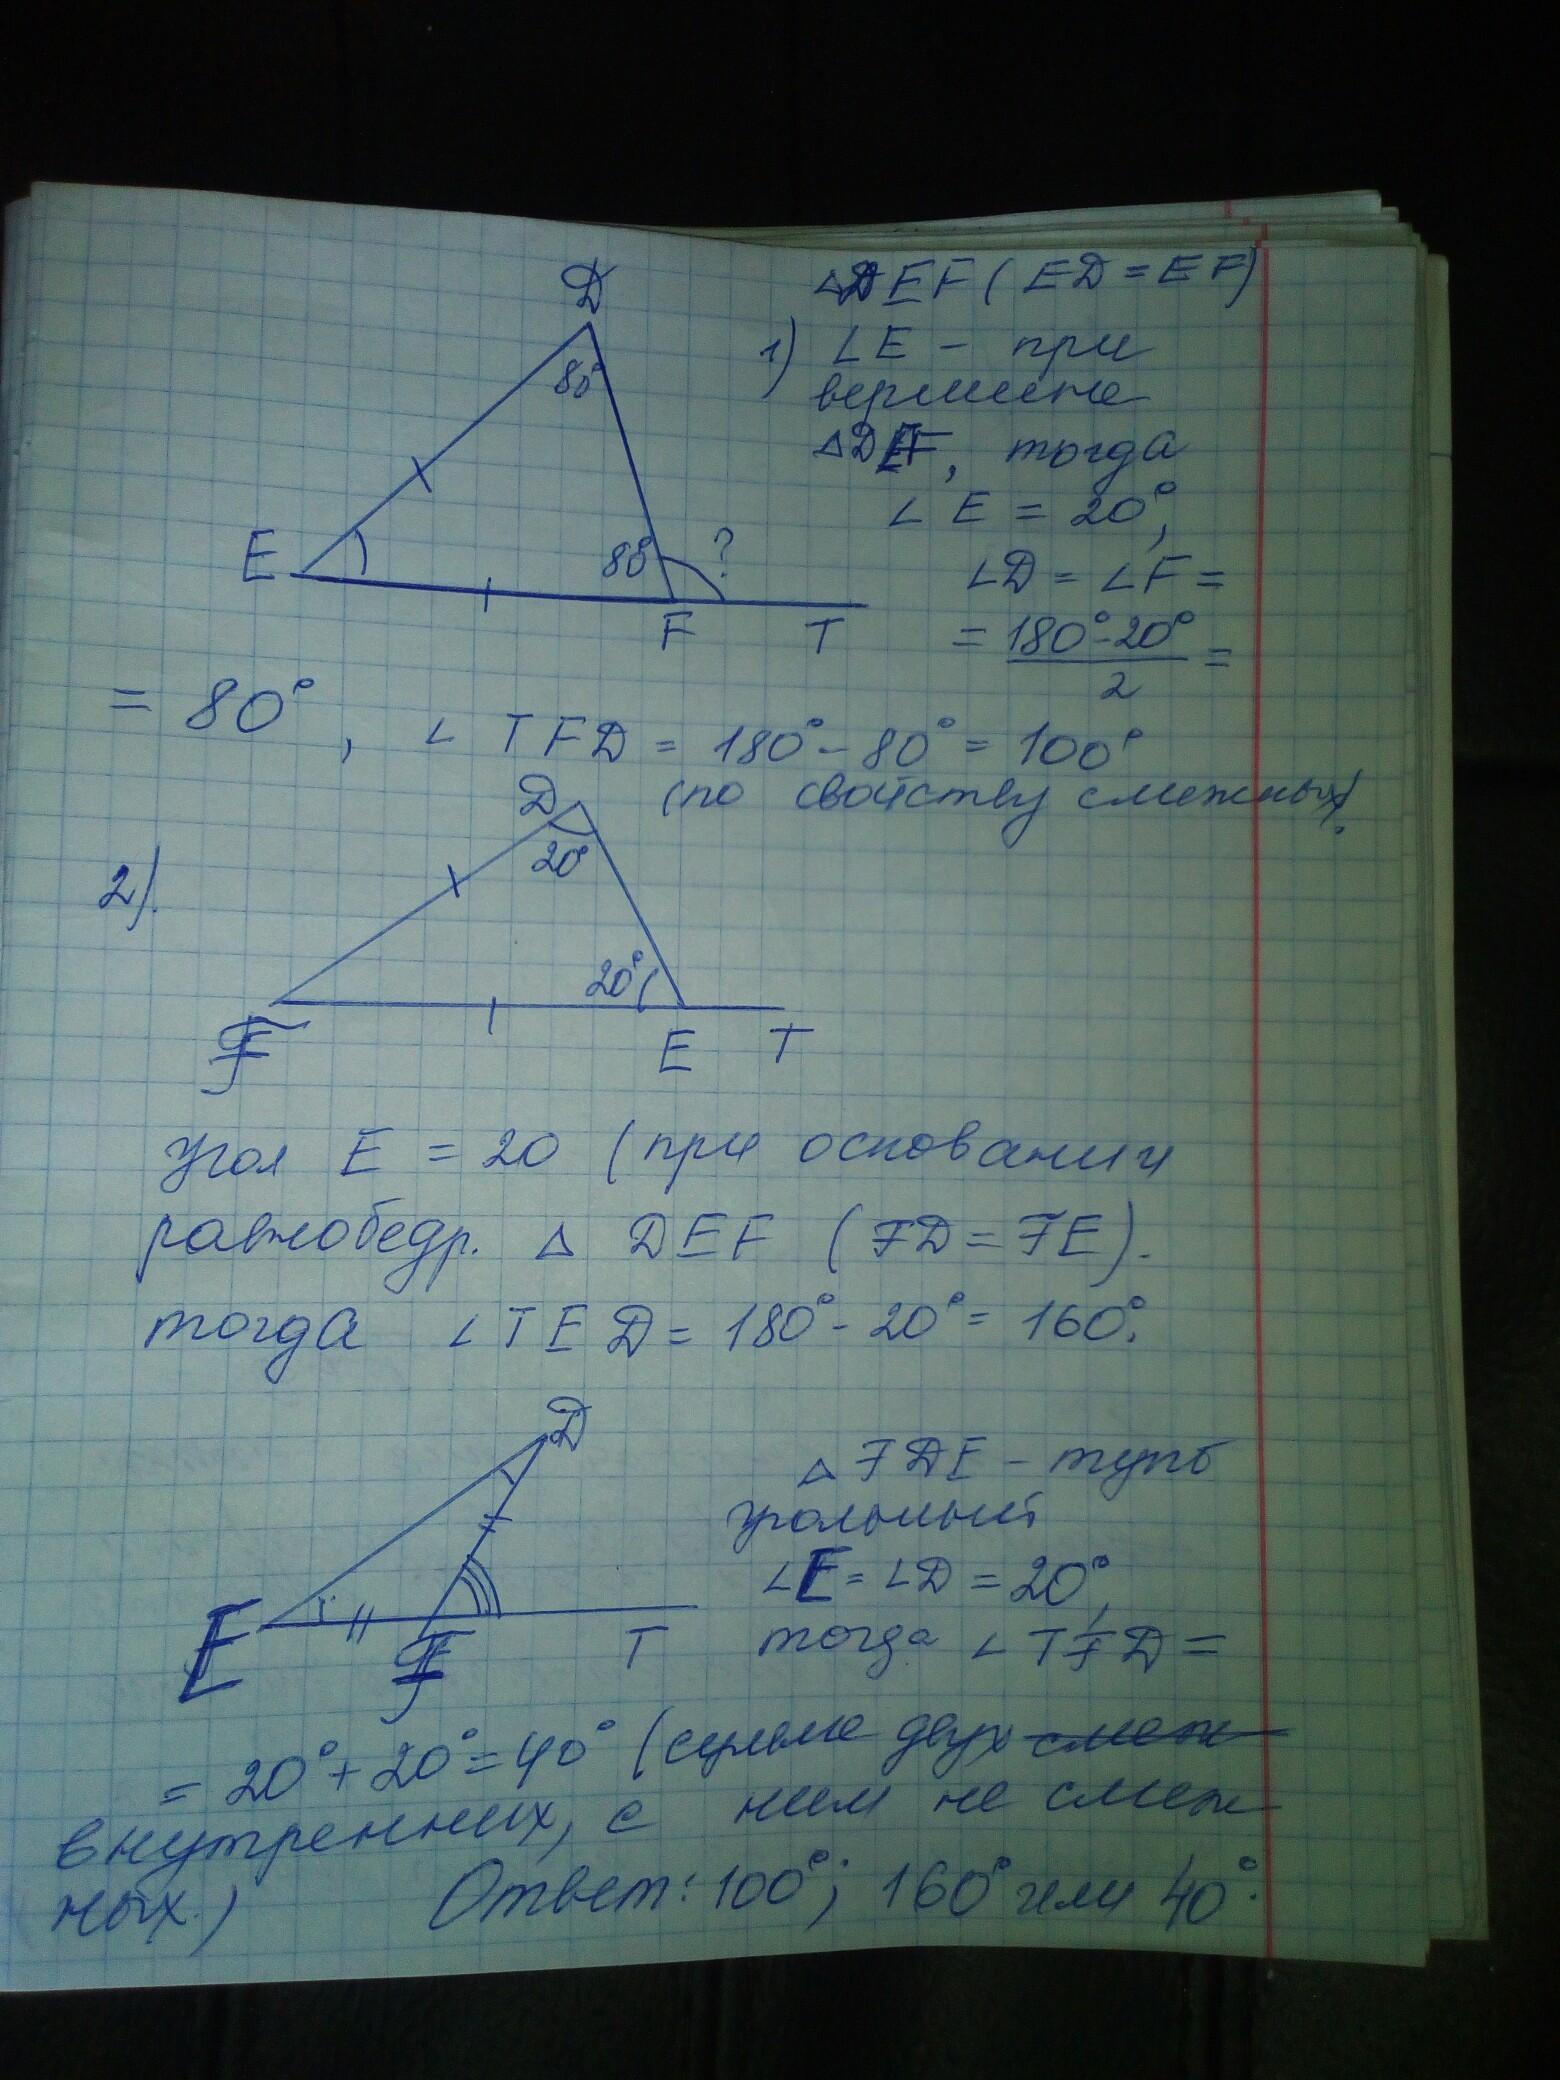 D
△DEF ( ED = EF)
1) ∠E - при
вершине
80°
△DEF, тогда
∠ E = 20°,
E
80°
?
∠D = ∠F =
F
T
= 180° - 20° / 2 =
= 80° , ∠ TFD = 180° - 80° = 100°
(по свойству смежных).
D
20°
2).
20°
F
E
T
угол E = 20 (при основании
равнобедр. △ DEF (FD = FE).
тогда ∠TED = 180° - 20° = 160°.
D
△ FDE - тупо
угольный
∠E = ∠D = 20°,
E
F
T
тогда ∠ TFD =
= 20° + 20° = 40° (сумме двух смеж
внутренних, с ним не смеж
ных.)
Ответ: 100°; 160° или 40°.